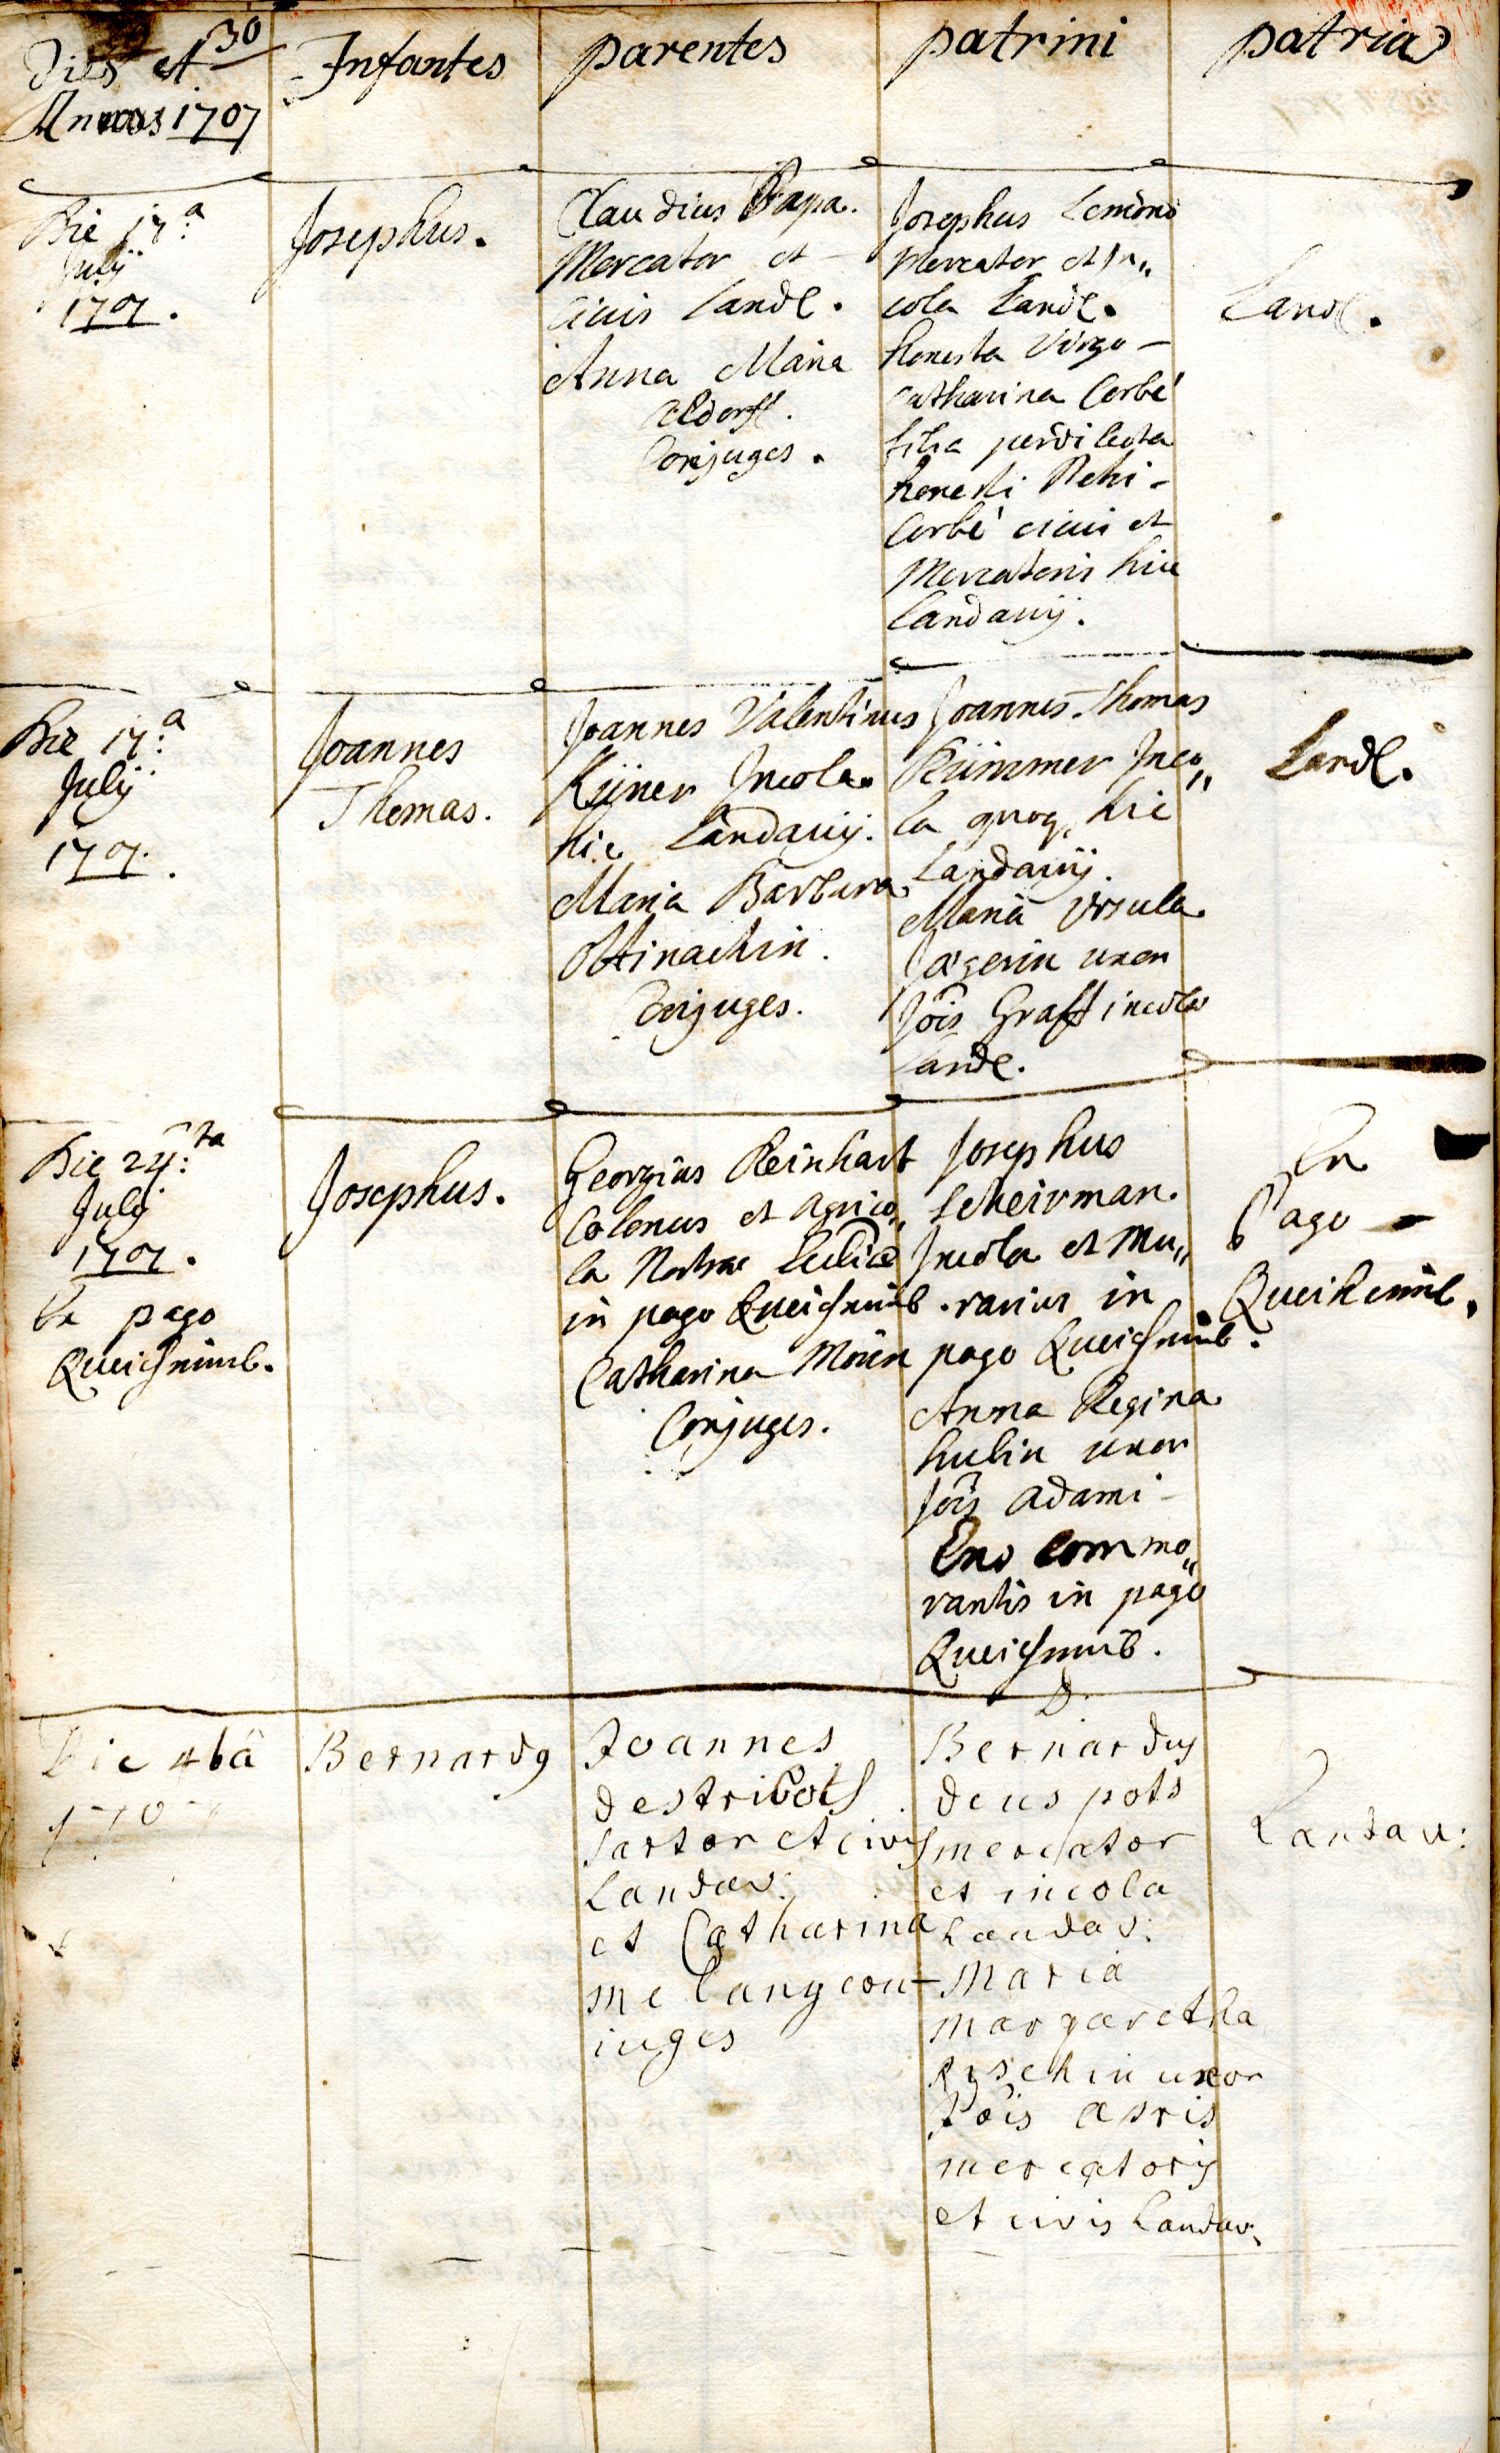 30
Dies et
Annus 1707
Infantes
parentes
patrini
patria
Die 17.a
Julij
1707.
Josephus.
Claudius Papa.
Mercator et
Civis Landl.
Anna Maria
Aldorff.
Conjuges.
Josephus Lemono
Mercator et In„
cola Landl.
honesta Virgo –
Catharina Corbé
filia perdilecta
honesti Rehi –
Corbé civis et
Mercatoris hic
Landavij.
Landl.
Die 17.a
Julij
1707.
Joannes
Thomas.
Joannes Valentinus
Küner Incola
hic Landavij.
Maria Barbara
Ottinachin.
Conjuges.
Joannes Thomas
Kümmer Inco„
la quoq, hic
Landavij.
Maria Vrsula
Jægerin uxor
Jois Graff incolæ
Landl.
Landl.
Die 24.ta
Julij
1707.
In pago
Queichhimb.
Josephus.
Georgius Reinhart
Colonus et Agrico„
la Nostræ
in pago Queichhimb.
Catharina Morin
Conjuges.
Josephus
Scheirman.
Incola et Mu„
rarius in
pago Queichhimb.
Anna Regina
Hubin uxor
Jois Adami –
Eno commo„
rantis in pago
Queichhimb.
In
Pago –
Queihimb.
Die
170
Bernardg
Joannes
destribots
sartor et civis
Landav:
et Catharina
melang con–
iuges
Bernardus
deus pots
mercator
et incola
Landav:
Maria
margaretha
uxor
Jois apris
mercatoris
et civis Landav,
Landau: